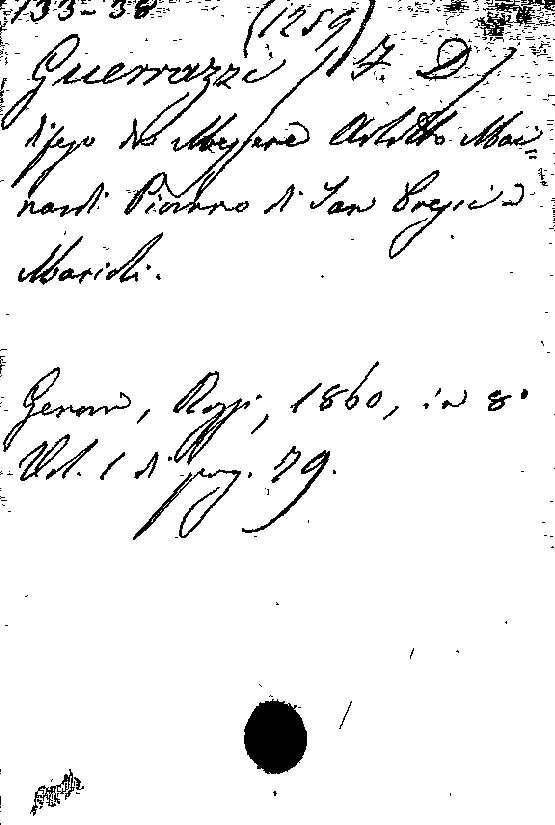 133-38
(1259)
Guerrazzi F. D.
difeso da Messere Arlotto Mai=
nardi Piovano di San Cresci a
Marioli.
Genova, Rossi, 1860, in 8°
Vol. 1 di pag. 79.